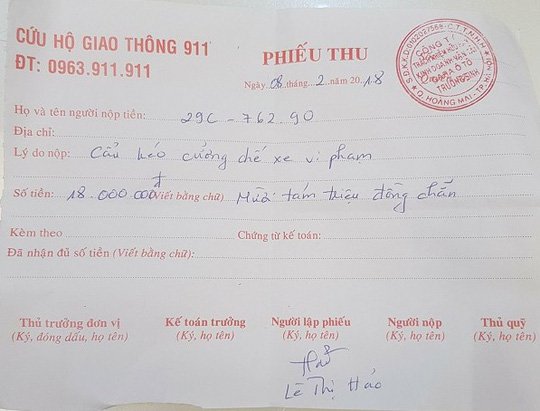 CỨU HỘ GIAO THÔNG 911
ĐT: 0963.911.911
PHIẾU THU
Ngày 08 tháng 2 năm 2018
CÔNG TY
TRƯỜNG SINH
Q. HOÀNG MAI - TP. HÀ NỘI
Họ và tên người nộp tiền: 29C - 762.90
Địa chỉ:
Lý do nộp: Cẩu kéo cưỡng chế xe vi phạm
Số tiền: 18.000.000đ (Viết bằng chữ) Mười tám triệu đồng chẵn
Kèm theo Chứng từ kế toán:
Đã nhận đủ số tiền (Viết bằng chữ):
Thủ trưởng đơn vị Kế toán trưởng Người lập phiếu Người nộp Thủ quỹ
(Ký, đóng dấu, họ tên) (Ký, họ tên) (Ký, họ tên) (Ký, họ tên) (Ký, họ tên)
Lê Thị Hảo